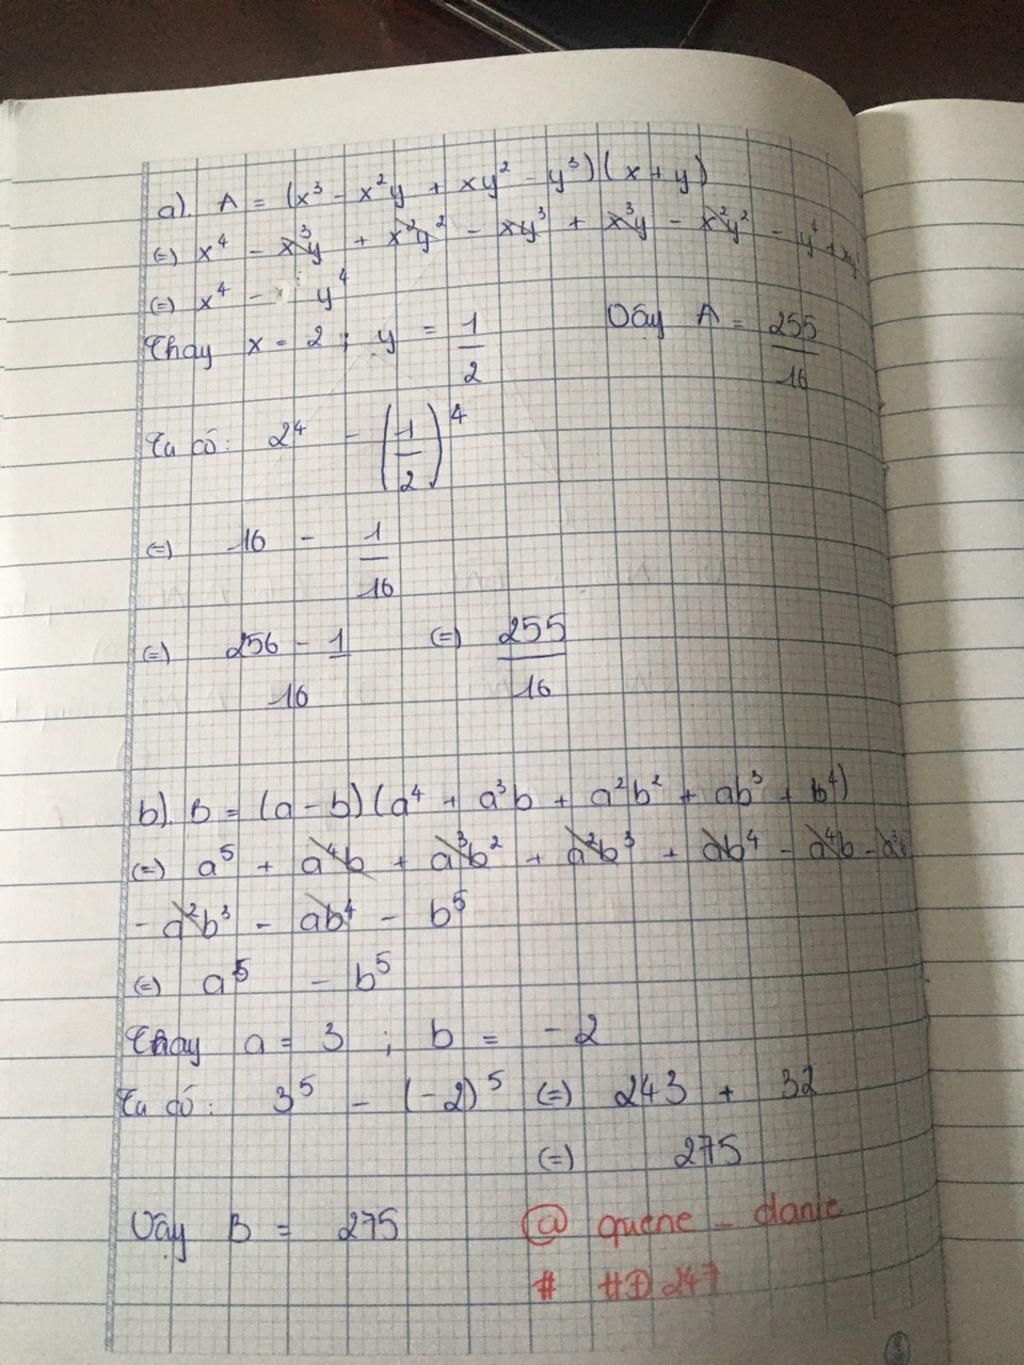 a). A = (x³ - x²y + xy² - y³)(x + y)
(=) x⁴ - x³y + x²y² - xy³ + x³y - x²y² - y⁴ +
(=) x⁴ - y⁴
Thay x = 2 ; y = 1/2 Vậy A = 255/16
Ta có: 2⁴ - (1/2)⁴
(=) 16 - 1/16
(=) 256 - 1 / 16 (=) 255/16
b). B = (a - b)(a⁴ + a³b + a²b² + ab³ + b⁴)
(=) a⁵ + a⁴b + a³b² + a²b³ + ab⁴ - a⁴b -
- a²b³ - ab⁴ - b⁵
(=) a⁵ - b⁵
Thay a = 3 ; b = -2
Ta có: 3⁵ - (-2)⁵ (=) 243 + 32
(=) 275
Vậy B = 275 @ quene - danie
# HĐ 247